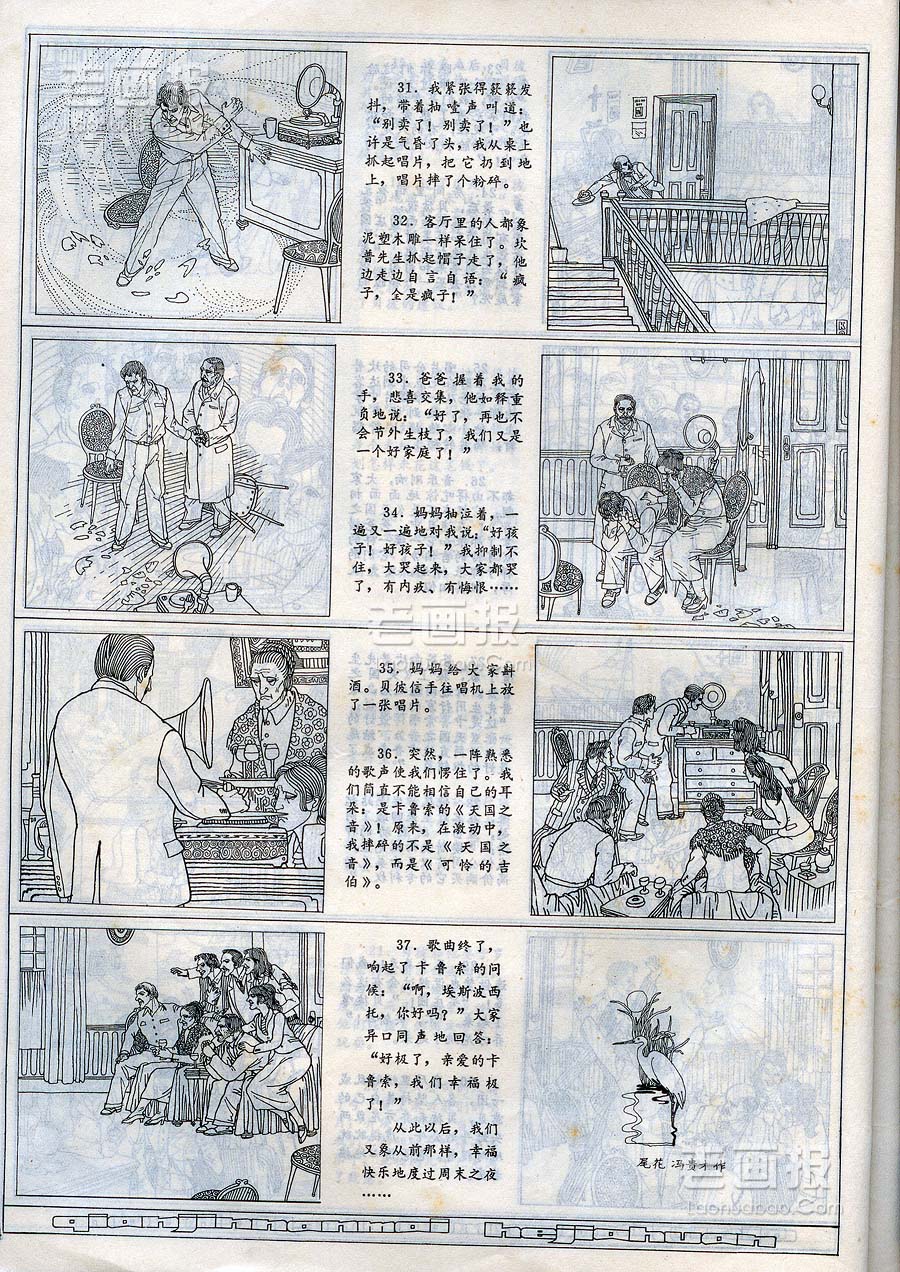 31．我紧张得簌簌发
抖，带着抽噎声叫道：
“别卖了！别卖了！”也
许是气昏了头，我从桌上
抓起唱片，把它扔到地
上，唱片摔了个粉碎。
32．客厅里的人都象
泥塑木雕一样呆住了。坎
普先生抓起帽子走了，他
边走边自言自语：“疯
子，全是疯子！”
33．爸爸握着我的
手，悲喜交集，他如释重
负地说：“好了，再也不
会节外生枝了，我们又是
一个好家庭了！”
34．妈妈抽泣着，一
遍又一遍地对我说：“好孩
子！好孩子！”我抑制不
住，大哭起来，大家都哭
了，有内疚、有悔恨……
35．妈妈给大家斟
酒。贝彼信手往唱机上放
了一张唱片。
36．突然，一阵熟悉
的歌声使我们愣住了。我
们简直不能相信自己的耳
朵：是卡鲁索的《天国之
音》！原来，在激动中，
我摔碎的不是《天国之
音》，而是《可怜的吉
伯》。
37．歌曲终了，
响起了卡鲁索的问
候：“啊，埃斯波西
托，你好吗？”大家
异口同声地回答：
“好极了，亲爱的卡
鲁索，我们幸福极
了！”
从此以后，我们
又象从前那样，幸福
快乐地度过周末之夜
……
尾花 冯贵才作
qianjinnanmai hejiahuan
老画报
老画报
老画报
laohuabao.com